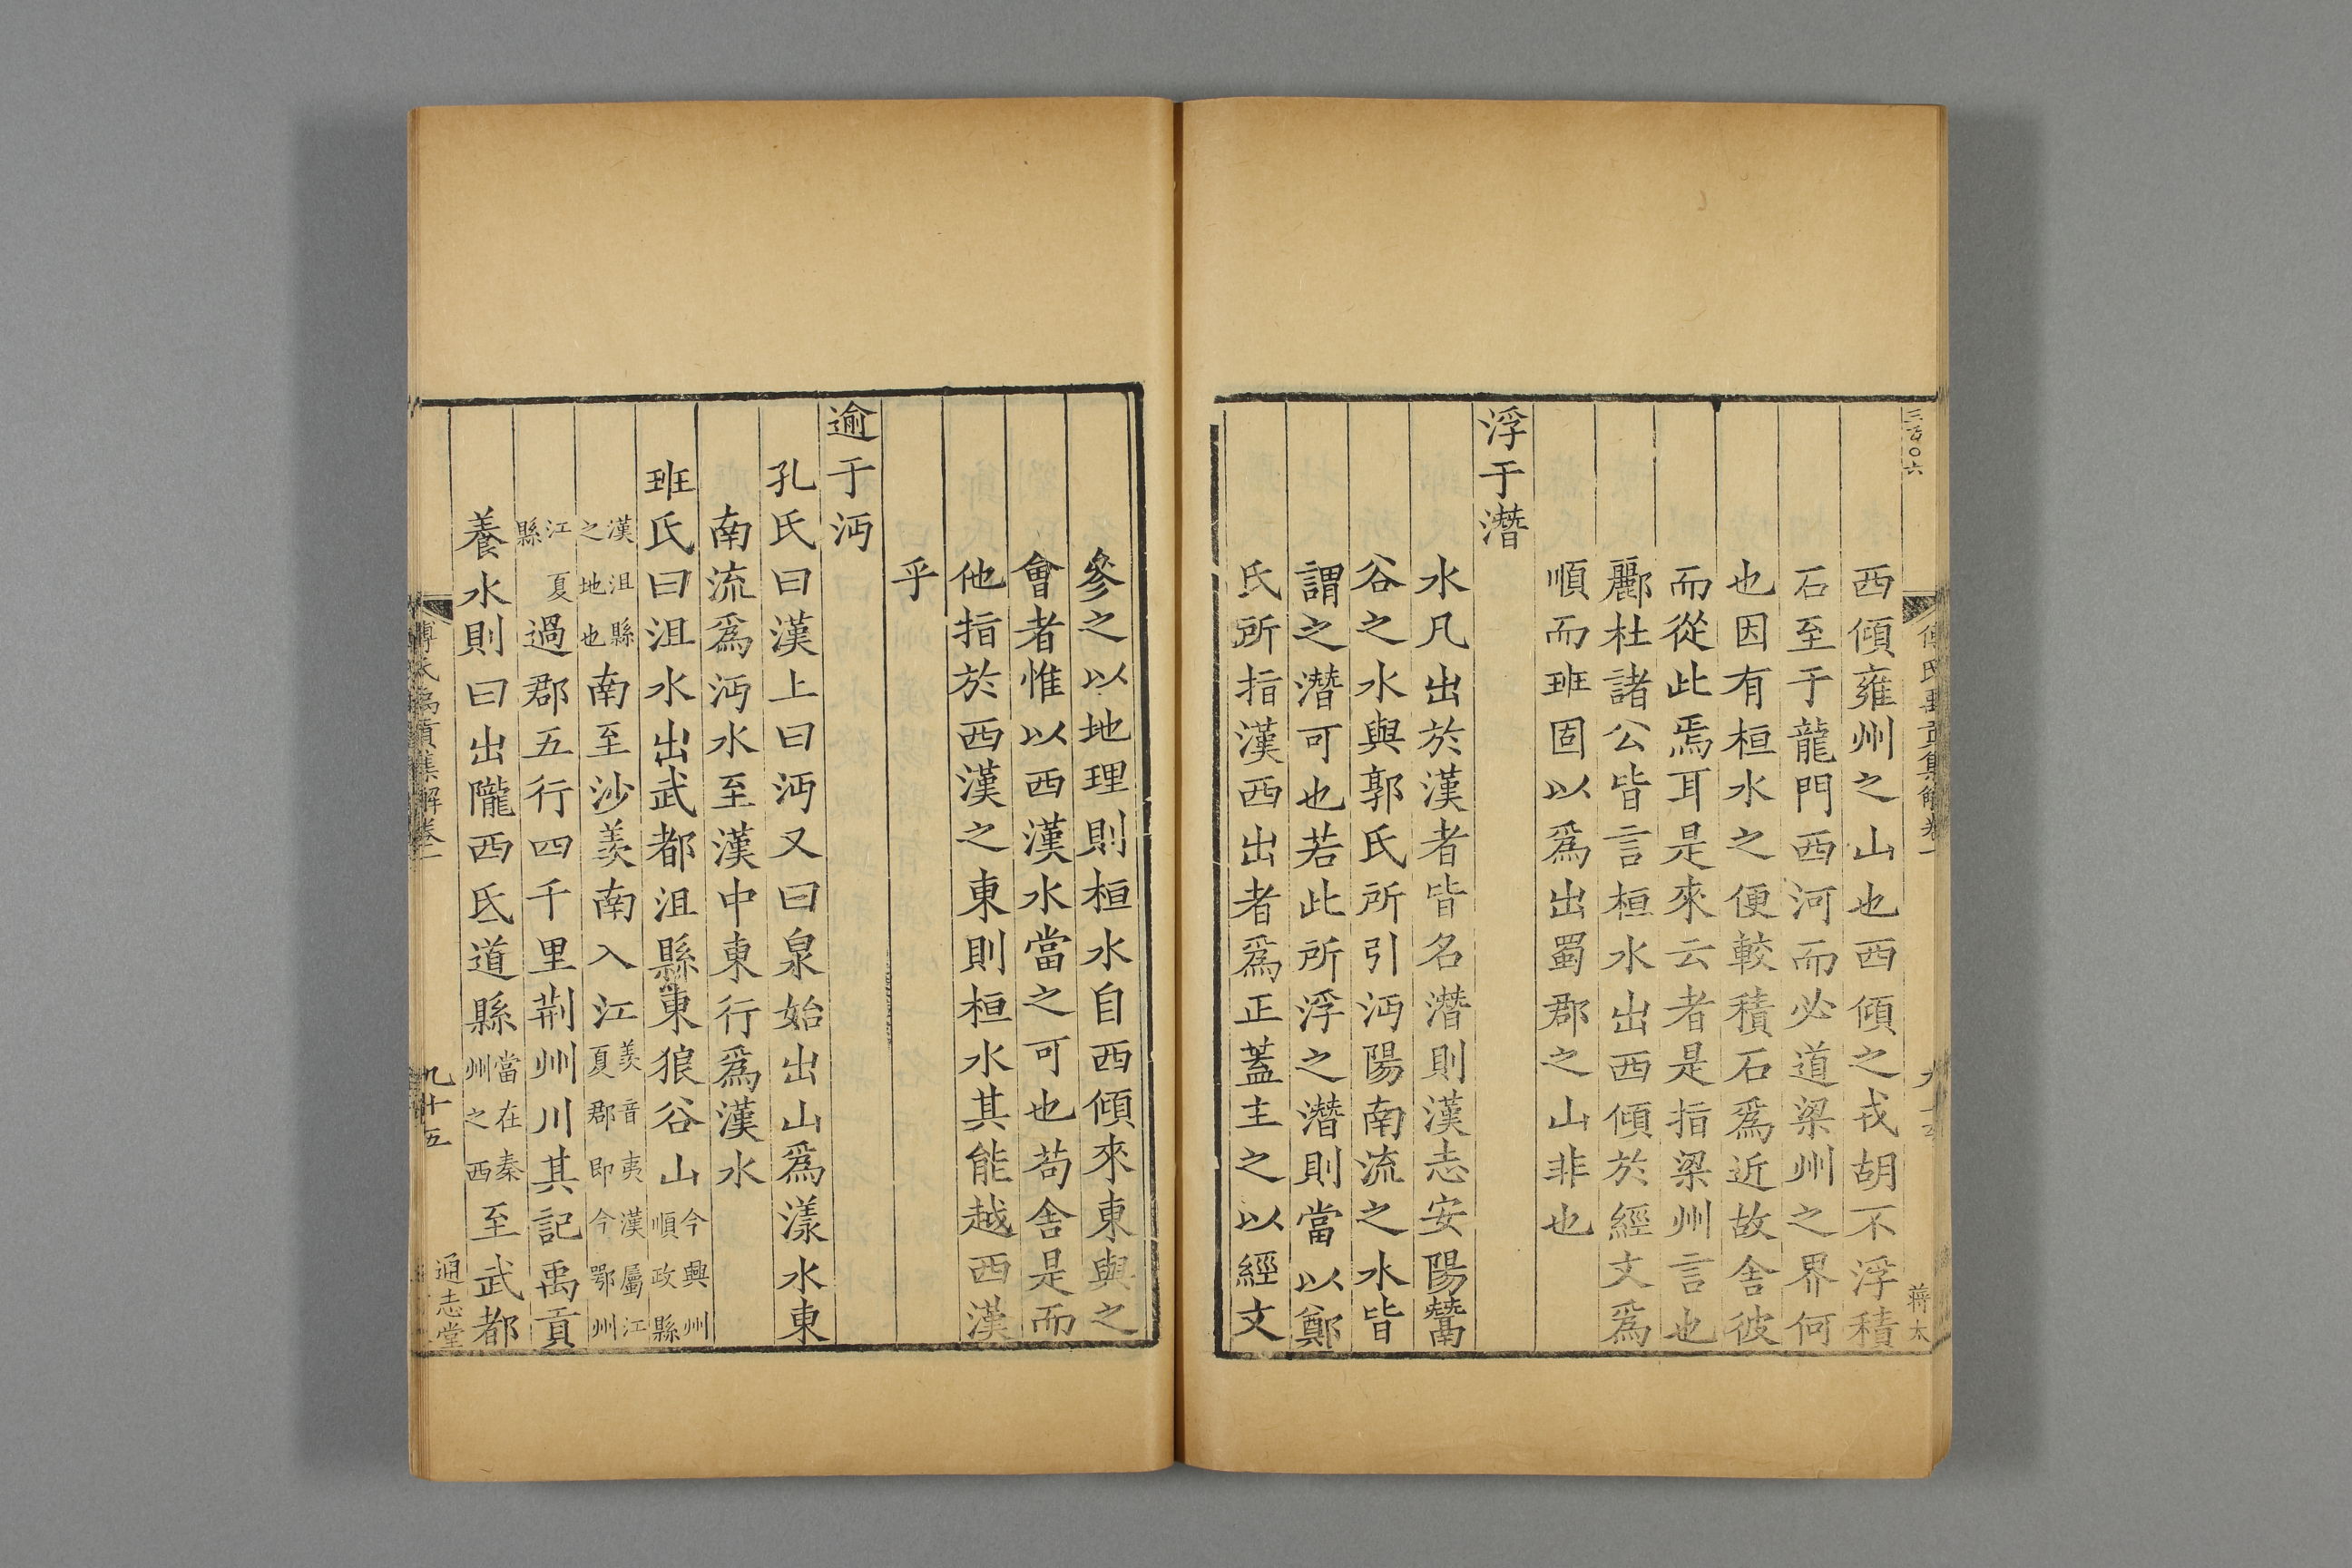 三百〇六
西傾雍州之山也西傾之戎胡不浮積
石至于龍門西河而必道梁州之界何
也因有桓水之便較積石為近故舍彼
而從此焉耳是來云者是指梁州言也
酈杜諸公皆言桓水出西傾於經文為
順而班固以為出蜀郡之山非也
浮于潛
水凡出於漢者皆名潛則漢志安陽鬵
谷之水與郭氏所引沔陽南流之水皆
謂之潛可也若此所浮之潛則當以鄭
氏所指漢西出者為正蓋主之以經文
參之以地理則桓水自西傾來東與之
會者惟以西漢水當之可也苟舍是而
他指於西漢之東則桓水其能越西漢
乎
逾于沔
孔氏曰漢上曰沔又曰泉始出山為漾水東
南流為沔水至漢中東行為漢水
班氏曰沮水出武都沮縣東狼谷山今興州順政縣
漢沮縣之地也南至沙羨南入江羨音夷漢屬江夏郡即今鄂州
江夏縣過郡五行四千里荆州川其記禹貢
養水則曰出隴西氐道縣當在秦州之西至武都
傅氏禹貢集解卷一
九十五
通志堂